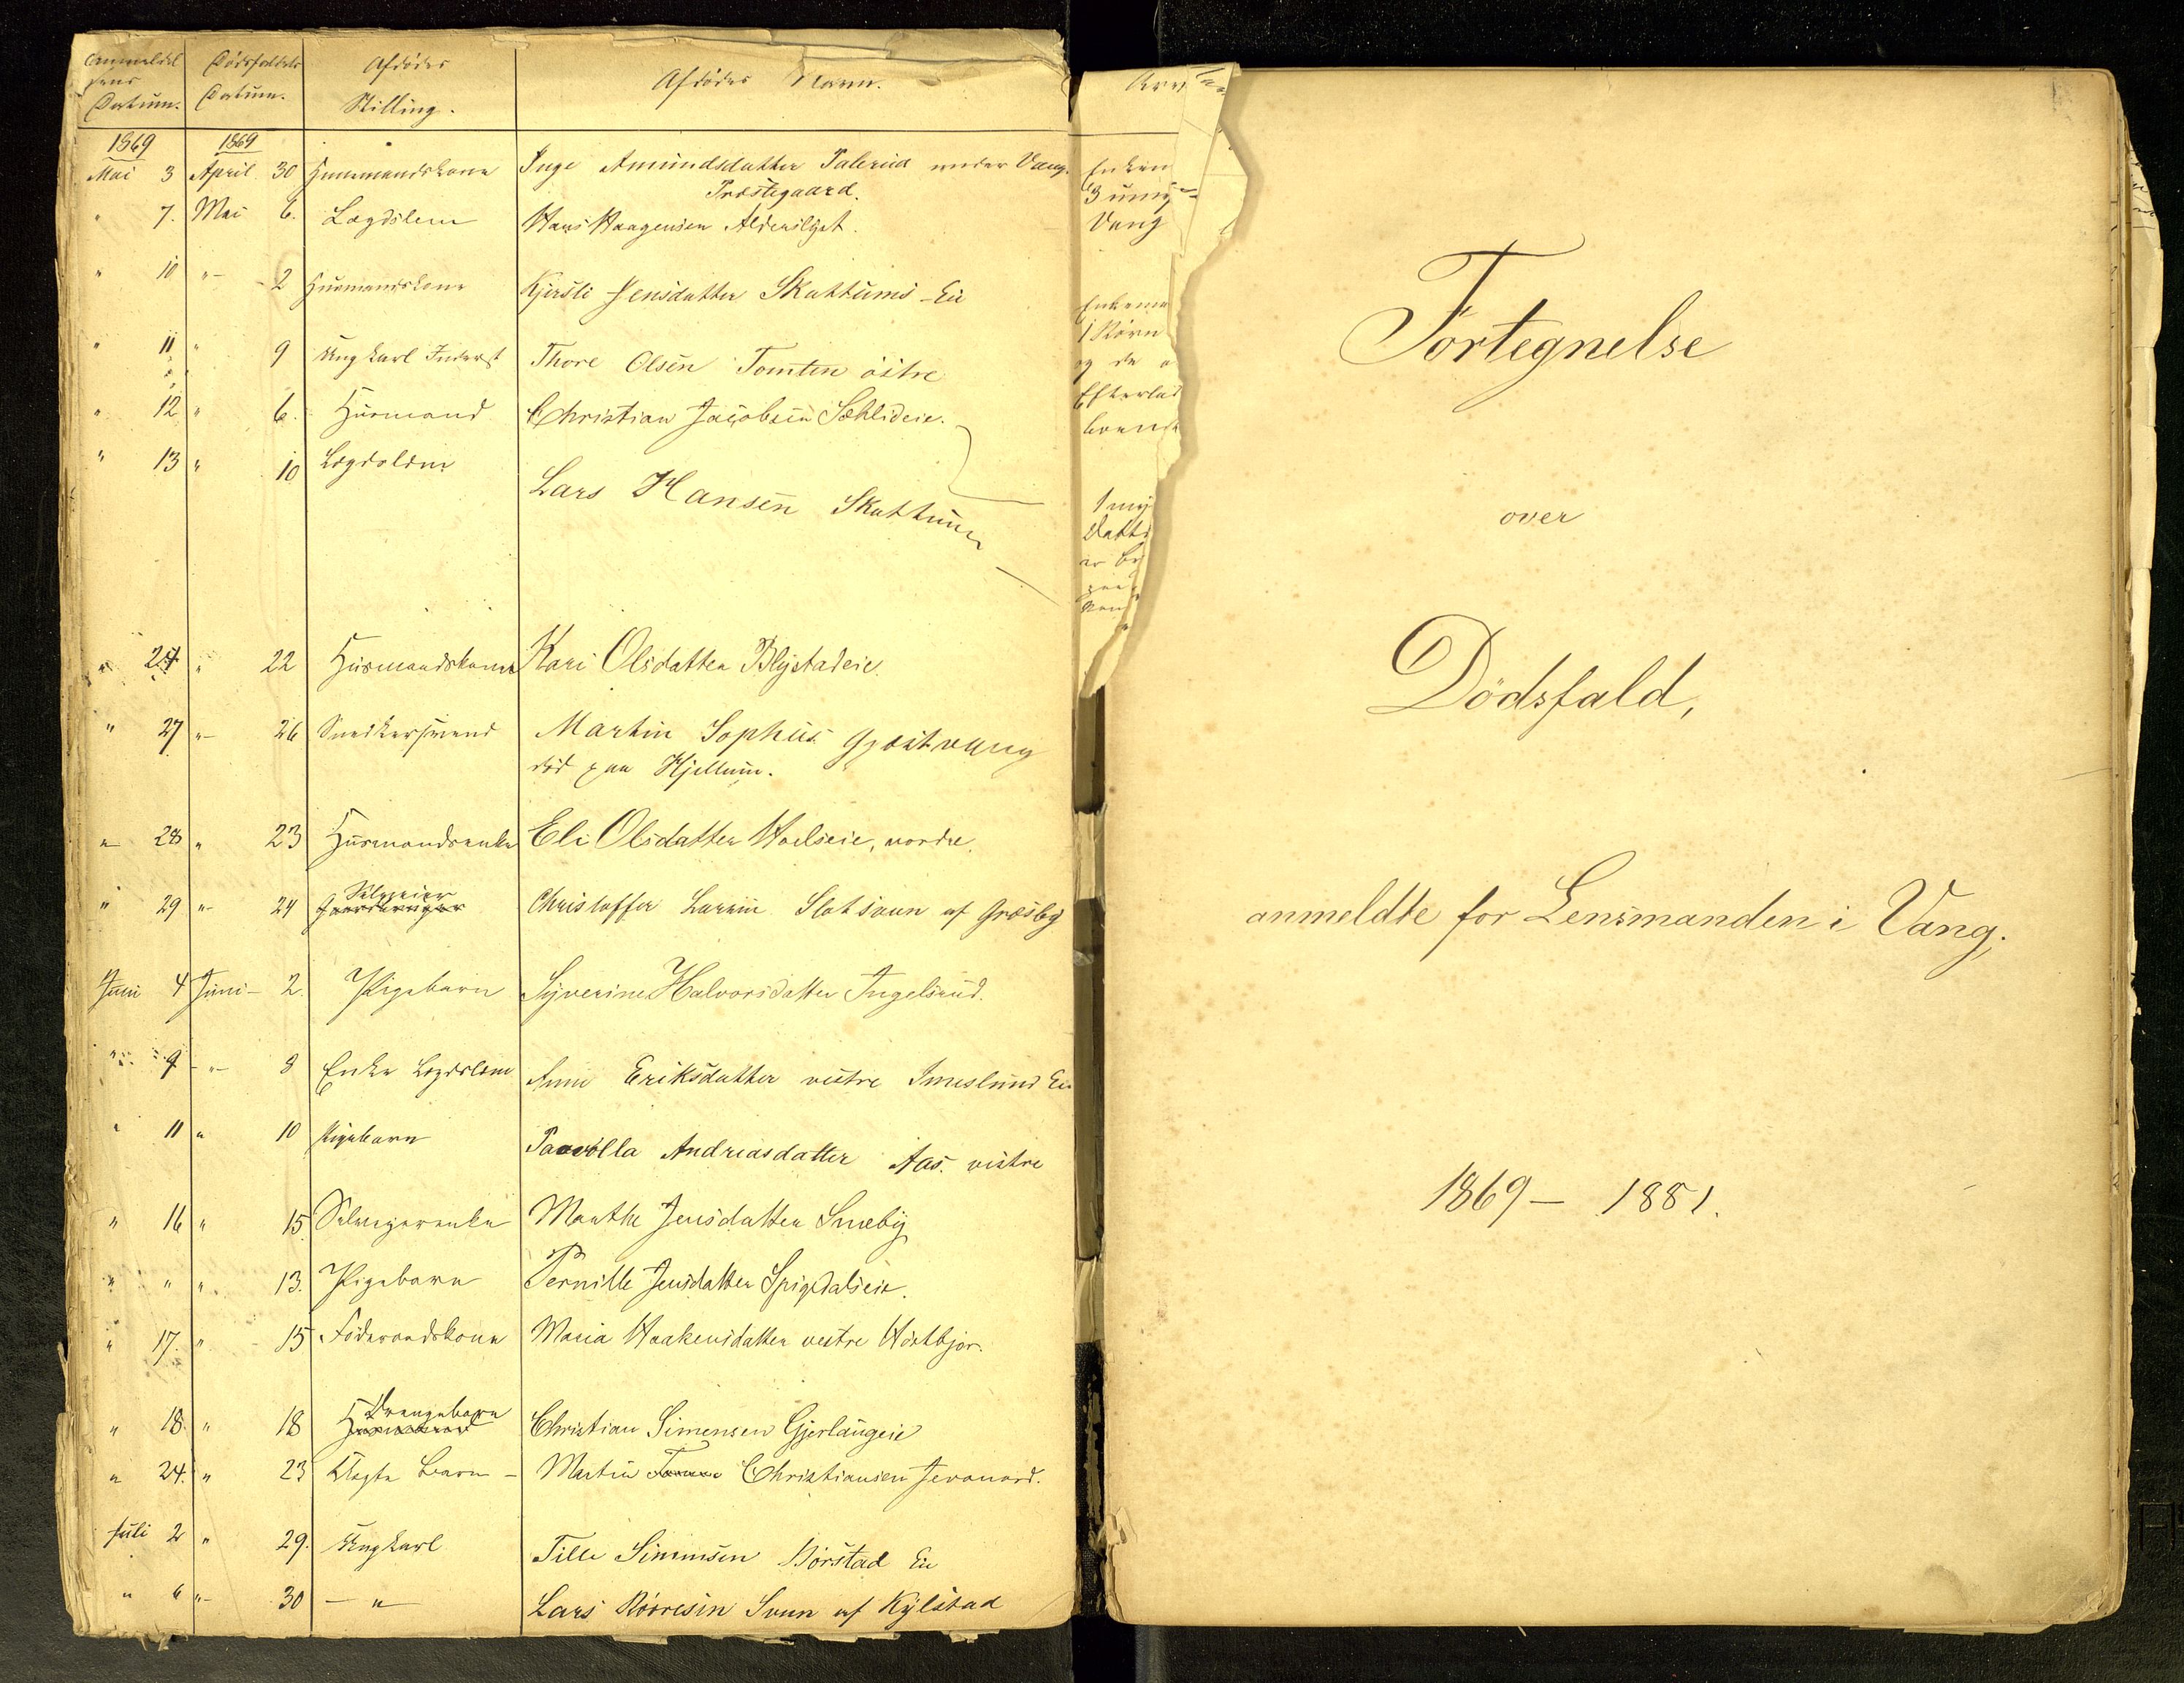 Anmeldel
sens
Datum.
Dødsfaldets
Datum.
Afdødes
Stilling.
Afdødes Navn.
1869 1869
Mai 3 April 30 Huusmandskone Inge Amundsdatter Palerud under Vang
Præstegaard.
" 7. Mai 6. Lægdslem Hans Haagensen Alderslyst.
" 10 "- 2 Husmandskone Kjersti Jensdatter Skattums-Eie
" 11 " 9 Ungkarl Inderst Thore Olsen Tomten östre
" 12 " 6. Husmand Christian Jacobsen Sæhlideie.
" 13 " 10 Lægdslem Lars Hansen Skattum
" 24 " 22 Husmandskone Kari Olsdatter Blystadeie.
" 27 "- 26 Snedkersvend Martin Sophus Gjæstvang
död paa Hjellum.
" 28 " 23 Husmandsenke Eli Olsdatter Hoelseie, nordre.
Selveier
" 29 "- 24 Gaardbruger Christoffer Larsen Slotsveen af Græsby
Juni 4 Juni- 2. Pigebarn Syverine Halvorsdatter Ingelsrud.
" 9 -"- 8 Enke Lægdslem Anne Eriksdatter vestre Imeslund Eie
" 11 " 10 Pigebarn Andreasdatter Aas. vestre
" 16 " 15. Selveierenke Marthe Jensdatter Sneby
" " " 13. Pigebarn Pernille Jensdatter Spigdalseie.
" 17. " 15 Föderaadskone Maria Haakensdatter vestre Hörtbjør.
Drengebarn
" 18. " 18 Husmand Christian Simensen Gjerlaugeie
" 24. " 23 Uægte Barn - Martin Christiansen Jevanord.
Juli 2 " 29. Ungkarl Tille Simensen Börstad Eie
" 6 "- 30 -"- Lars Sveen af Kylstad
Enken
3 umy=
Vang
Enkema
1 Barn
og de
Efterlad
1 my
Datte
Fortegnelse
over
Dödsfald,
anmeldte for Lensmanden i Vang.
1869 - 1881.